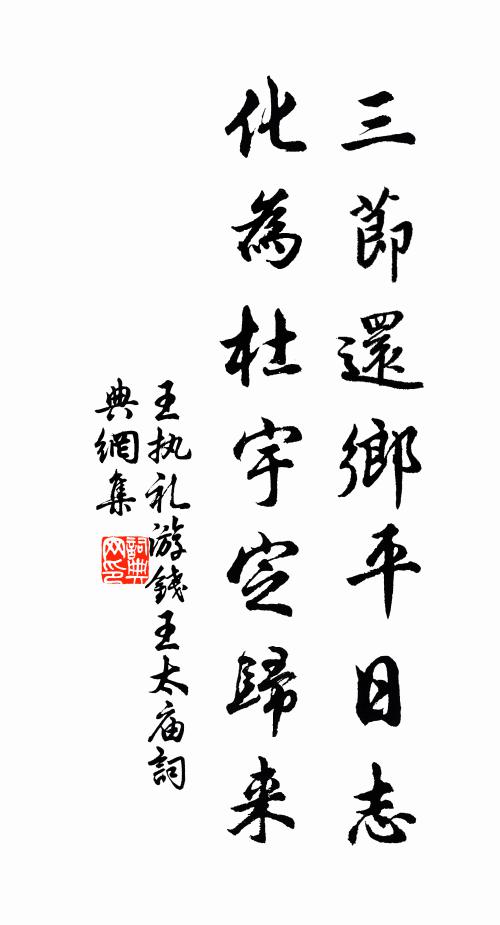 三節還鄉平日志
化為杜宇定歸来
王执礼游錢王太庙詞
典網集
詞典
网印